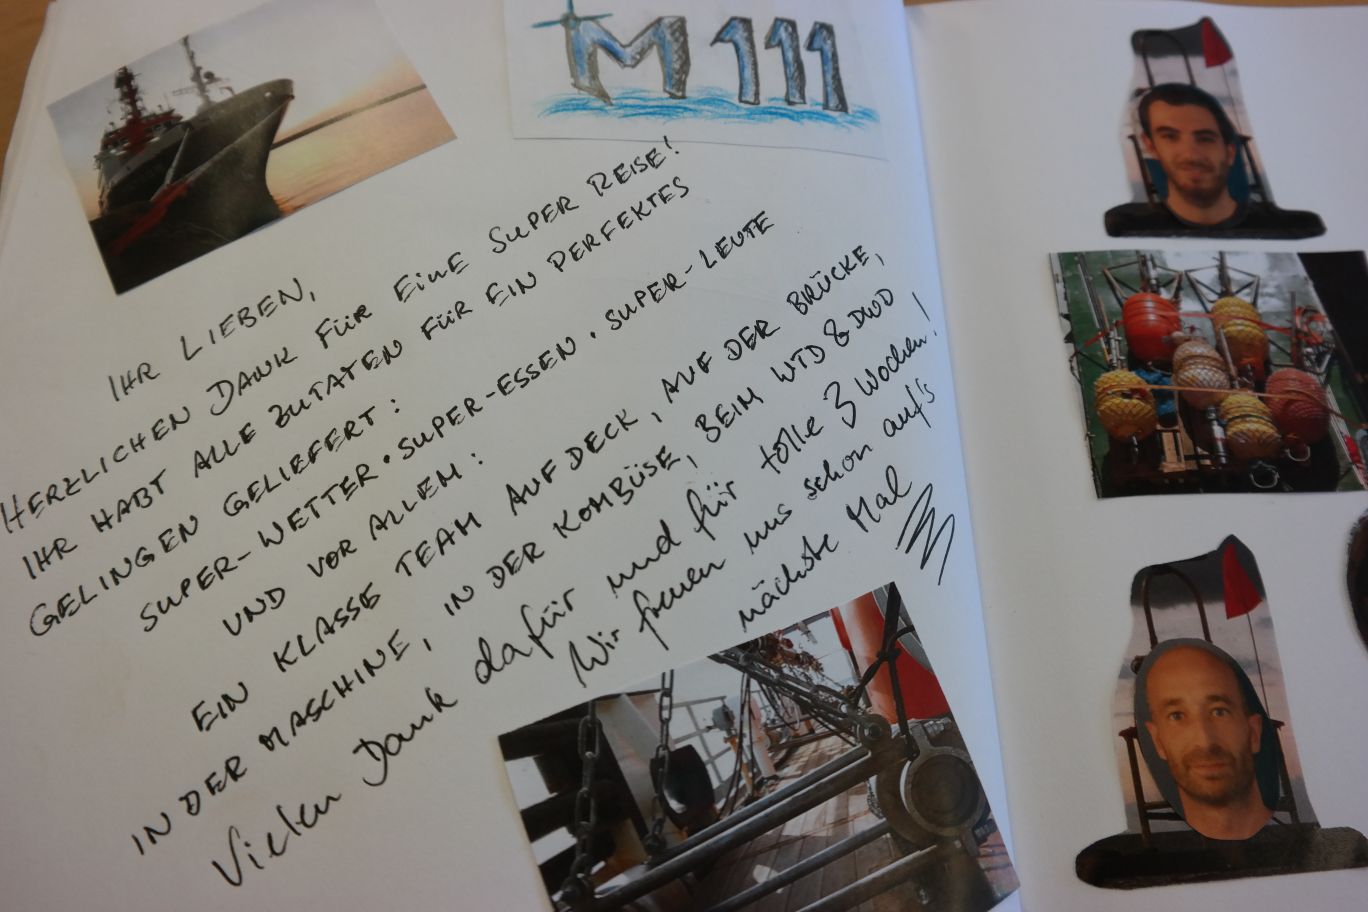 M 111
IHR LIEBEN,
HERZLICHEN DANK FÜR EINE SUPER REISE!
IHR HABT ALLE ZUTATEN FÜR EIN PERFEKTES
GELINGEN GELIEFERT:
SUPER-WETTER · SUPER-ESSEN · SUPER-LEUTE
UND VOR ALLEM:
EIN KLASSE TEAM AUF DECK, AUF DER BRÜCKE,
IN DER MASCHINE, IN DER KOMBÜSE, BEIM WTD & DWD
Vielen Dank dafür und für tolle 3 Wochen!
Wir freuen uns schon auf's
nächste Mal